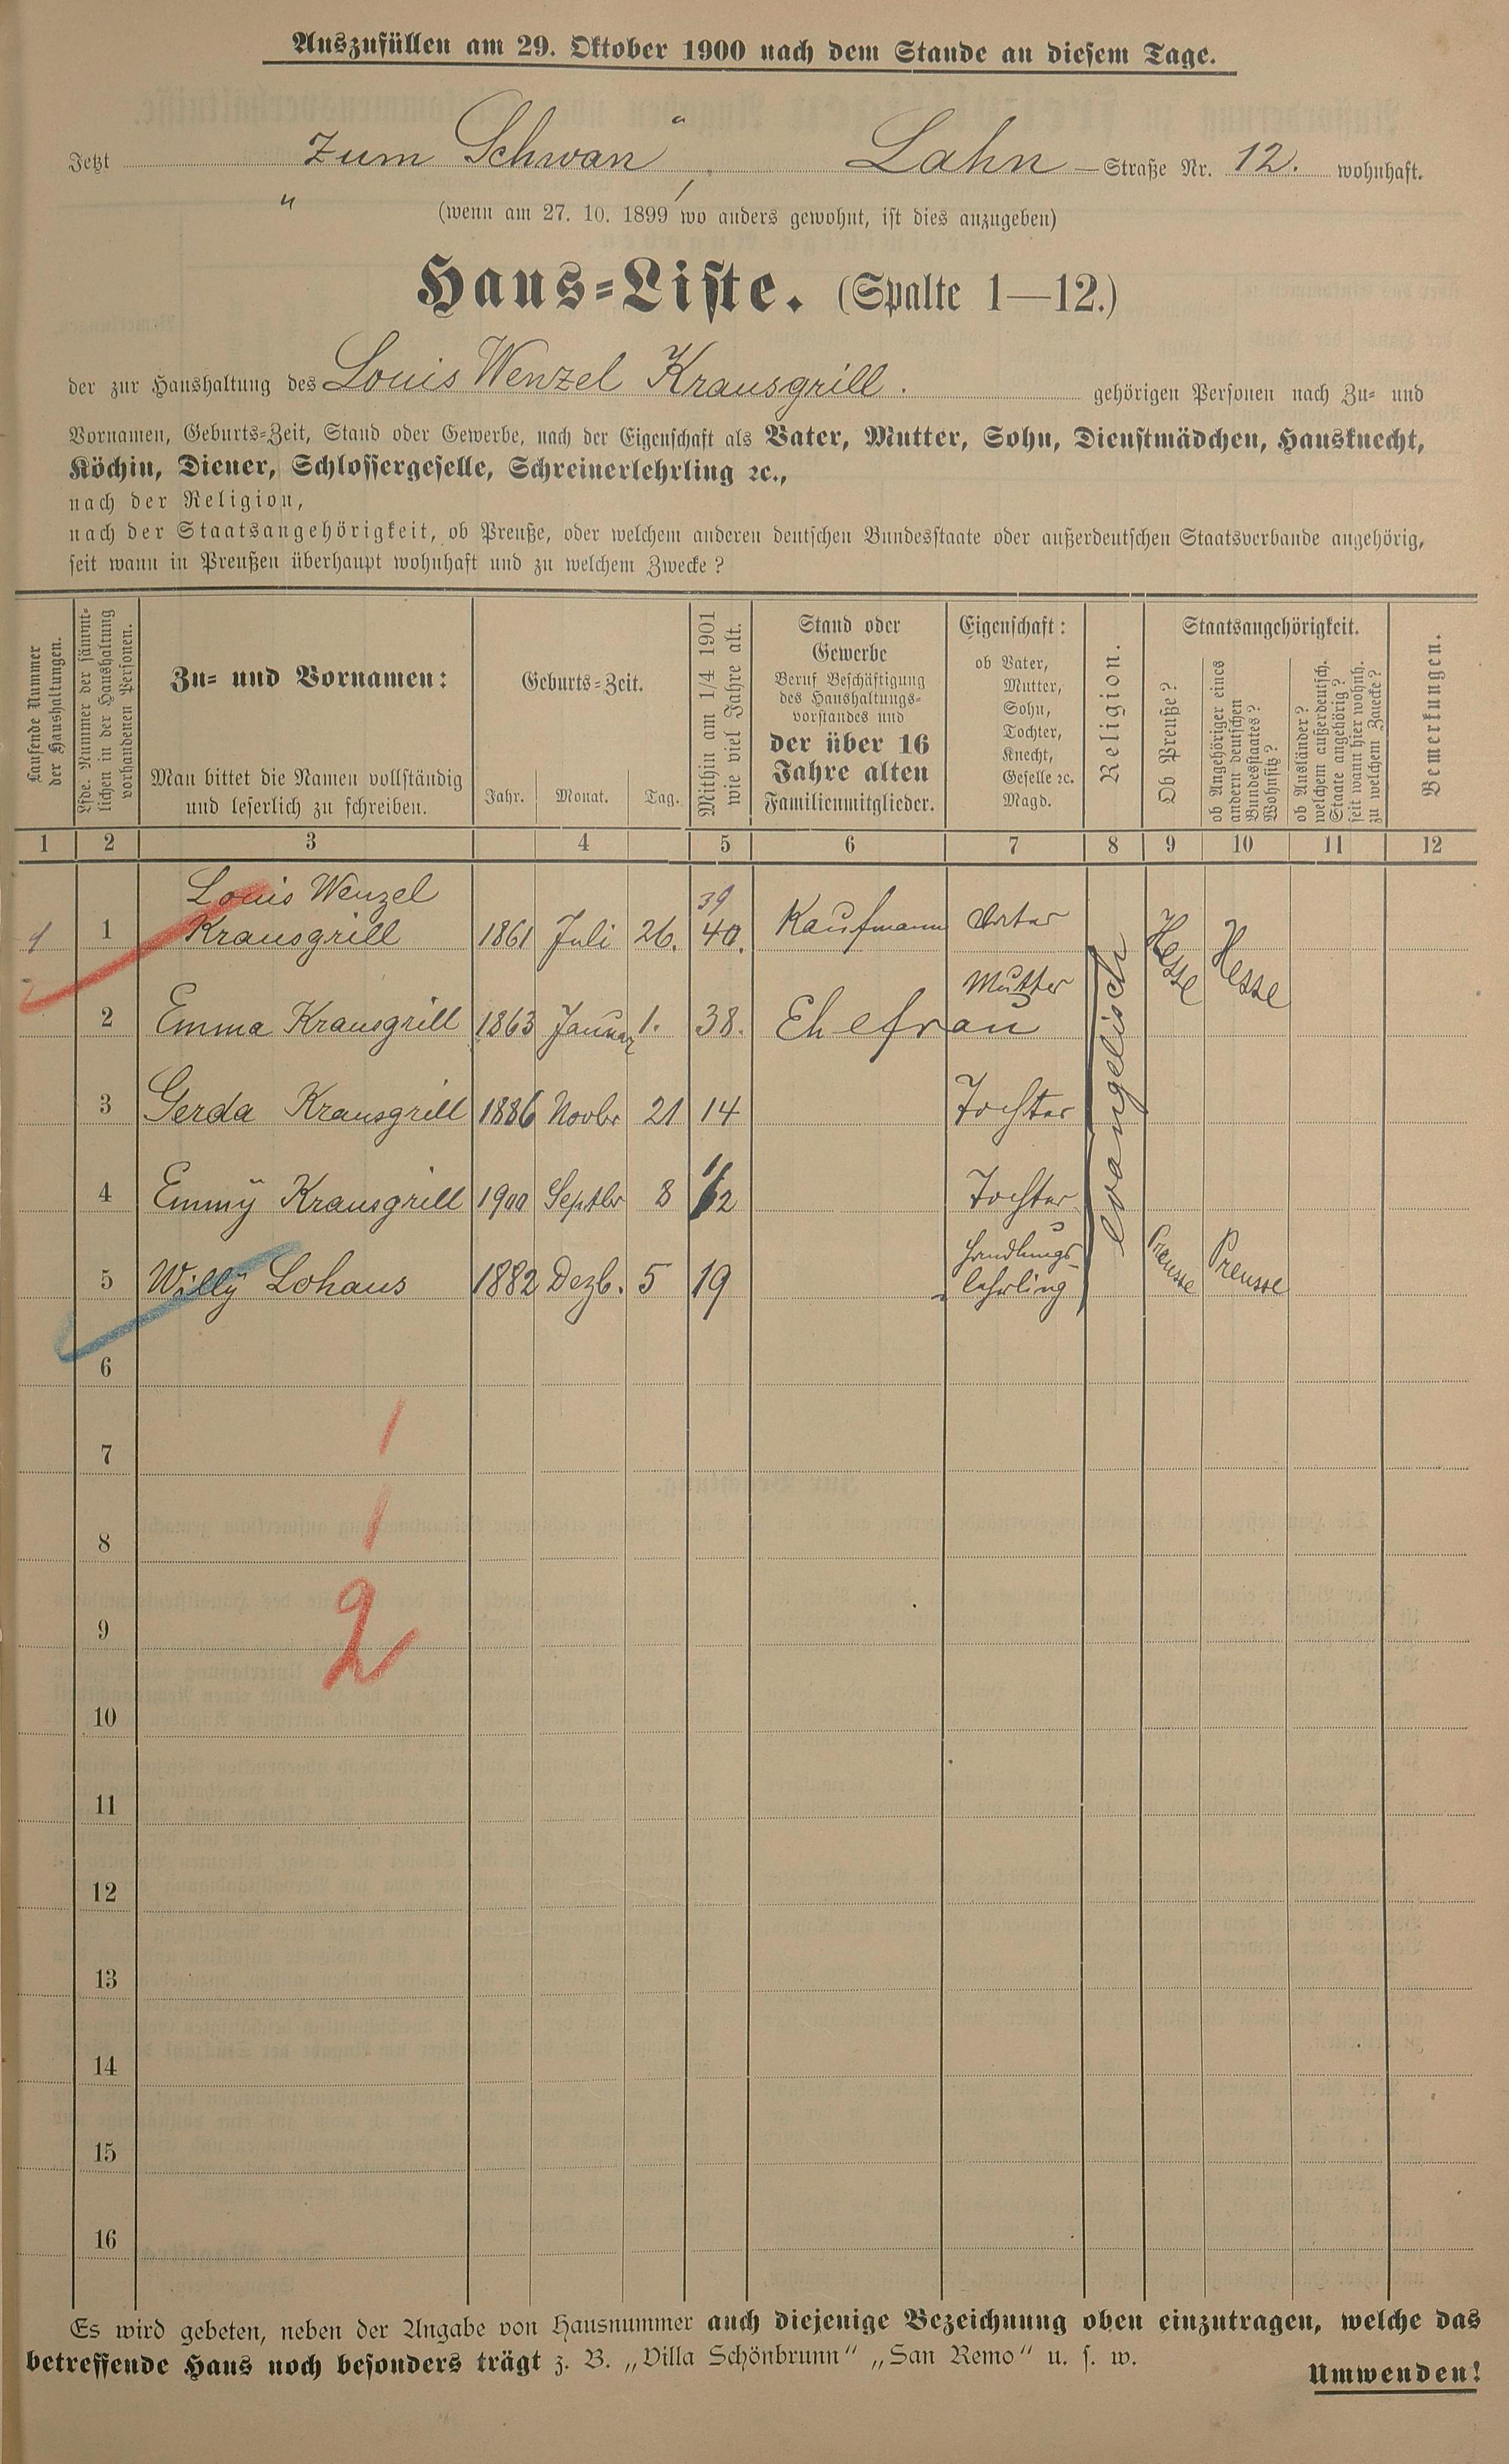 Auszufüllen am 29. Oktober 1900 nach dem Stande an diesem Tage.
Jetzt „Zum Schwan“, Lahn-Straße Nr. 12. wohnhaft.
(wenn am 27. 10. 1899 wo anders gewohnt, ist dies anzugeben)
Haus-Liste. (Spalte 1—12.)
der zur Haushaltung des Louis Wenzel Krausgrill. gehörigen Personen nach Zu- und
Vornamen, Geburts-Zeit, Stand oder Gewerbe, nach der Eigenschaft als Vater, Mutter, Sohn, Dienstmädchen, Hausknecht,
Köchin, Diener, Schlossergeselle, Schreinerlehrling ꝛc.,
nach der Religion,
nach der Staatsangehörigkeit, ob Preuße, oder welchem anderen deutschen Bundesstaate oder außerdeutschen Staatsverbande angehörig,
seit wann in Preußen überhaupt wohnhaft und zu welchem Zwecke?
Laufende Nummer
der Haushaltungen.
Lfde. Nummer der sämmt-
lichen in der Haushaltung
vorhandenen Personen.
Zu- und Vornamen:
Man bittet die Namen vollständig
und leserlich zu schreiben.
Geburts-Zeit.
Jahr. Monat. Tag.
Mithin am 1/4 1901
wie viel Jahre alt.
Stand oder
Gewerbe
Beruf Beschäftigung
des Haushaltungs-
vorstandes und
der über 16
Jahre alten
Familienmitglieder.
Eigenschaft:
ob Vater,
Mutter,
Sohn,
Tochter,
Knecht,
Geselle ꝛc.
Magd.
Religion.
Staatsangehörigkeit.
Ob Preuße?
ob Angehöriger eines
andern deutschen
Bundesstaates?
Wohnsitz?
ob Ausländer?
welchem außerdeutsch.
Staate angehörig?
seit wann hier wohnh.
zu welchem Zwecke?
Bemerkungen.
1 2 3 4 5 6 7 8 9 10 11 12
Louis Wenzel 39
1 1 Krausgrill 1861 Juli 26. 40. Kaufmann Vater Hesse Hesse
Mutter
2 Emma Krausgrill 1863 Januar 1. 38. Ehefrau
evangelisch
3 Gerda Krausgrill 1886 Novbr 21 14 Tochter
4 Emmÿ Krausgrill 1900 Septbr 8 1/2 Tochter
5 Willÿ Lohaus 1882 Dezb. 5 19 Handlungs- Preusse Preusse
lehrling
6
1
7
1
8
2
9
10
11
12
13
14
15
16
Es wird gebeten, neben der Angabe von Hausnummer auch diejenige Bezeichnung oben einzutragen, welche das
betreffende Haus noch besonders trägt z. B. „Villa Schönbrunn“ „San Remo“ u. s. w.
Umwenden!